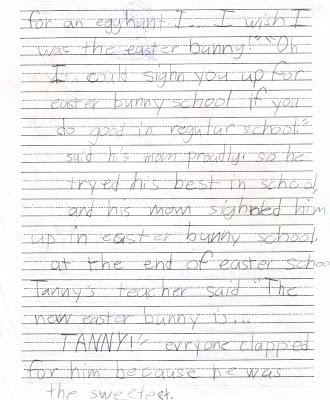 for an egg hunt. I... I wish I
was the easter bunny!" "Oh
I.. could sighn you up for
easter bunny school if you
do good in regular school."
said his mom proudly. so he
tryed his best in school,
and his mom sighned him
up in easter bunny school.
at the end of easter schoo
Tanny's teacher said "The
new easter bunny is...
TANNY!" evryone clapped
for him because he was
the sweetest.